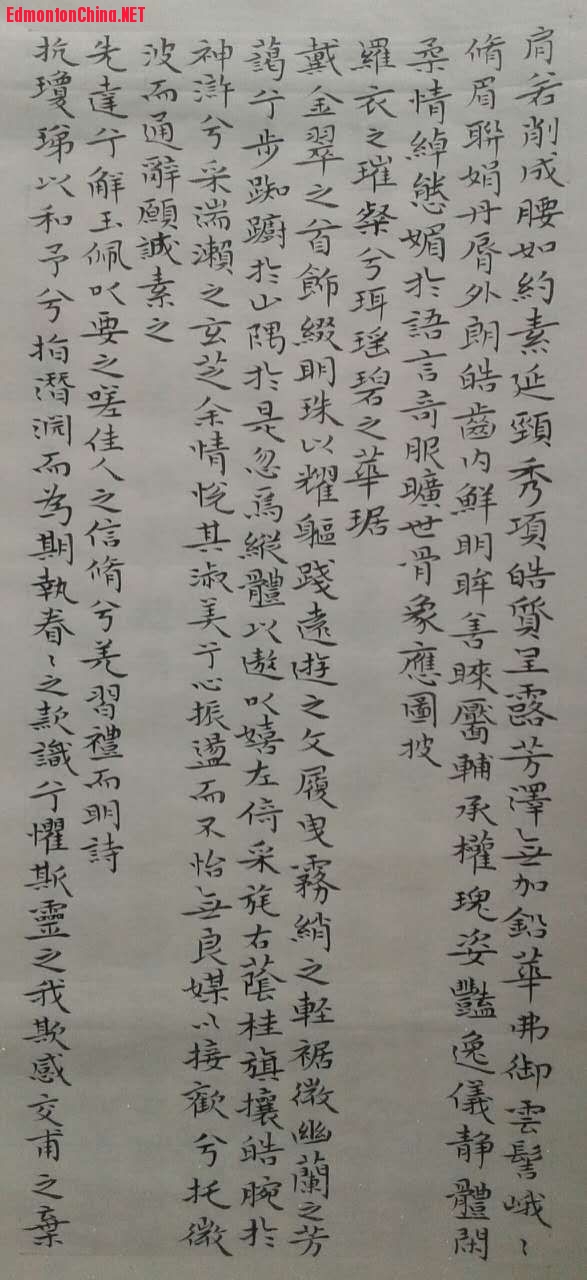 EdmontonChina.NET
肩若削成腰如約素延頸秀項皓質呈露芳澤無加鉛華弗御雲髻峨〻
脩眉聯娟丹脣外朗皓齒内鮮明眸善睞靨輔承權瑰姿豔逸儀静體閑
柔情綽態媚於語言奇服曠世骨象應圖披
羅衣之璀粲兮珥瑶碧之華琚
戴金翠之首飾綴明珠以耀軀踐遠遊之文履曳霧綃之軽裾微幽蘭之芳
藹兮步踟躕於山隅於是忽焉縱體以遨以嬉左倚采旄右蔭桂旗攘皓腕於
神滸兮采湍瀨之玄芝余情悅其淑美兮心振盪而不怡無良媒以接歡兮托微
波而通辭願誠素之
先達兮解玉佩以要之嗟佳人之信脩兮羌習禮而明詩
抗瓊珶以和予兮指潛渊而為期執眷〻之款識兮懼斯靈之我欺感交甫之棄